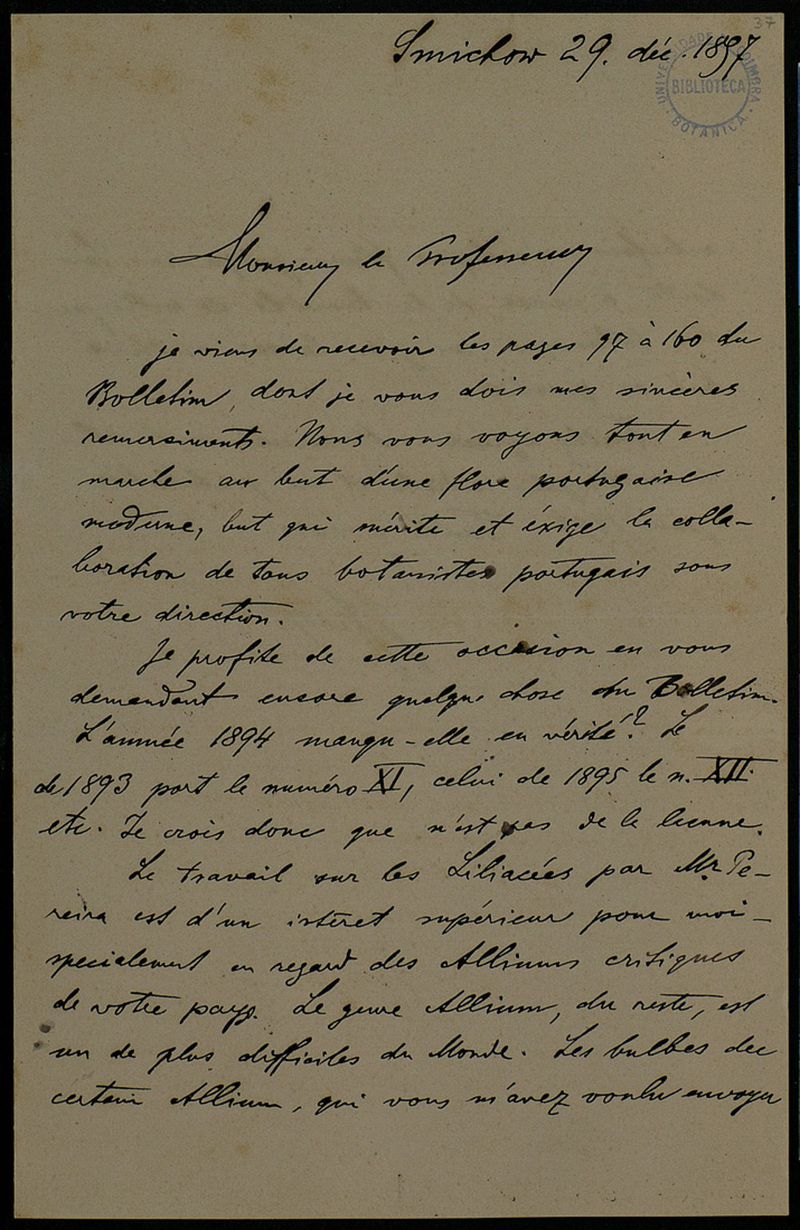 37
Smichow 29. déc. 1897
UNIVERSIDADE DE COIMBRA
BIBLIOTECA
BOTANICA
Monsieur le Professeur
je viens de recevoir les pages 97 à 160 du
Bolletim, dont je vous dois mes sincères
remerciments. Nous vous voyons tout en
marche au but d'une flore portugaise
moderne, but qui mérite et éxige la colla-
boration de tous botanistes portugais sous
votre direction.
Je profite de cette occasion en vous
demandant encore quelque chose du Bolletim.
L'année 1894 manqu-elle en vérité? Le
de 1893 port le numéro XI, celui de 1895 le n. XII.
etc. Je crois donc que n'est pas de la
Le travail sur les Liliacées par Mr. Pe-
reira est d'un intêret supérieur pour moi -
specialement en regard des Alliums critiques
de votre pays. Le genre Allium, du reste, est
un de plus difficiles du Monde. Les bulbes
certain Allium, qui vous m'avez voulu envoyer